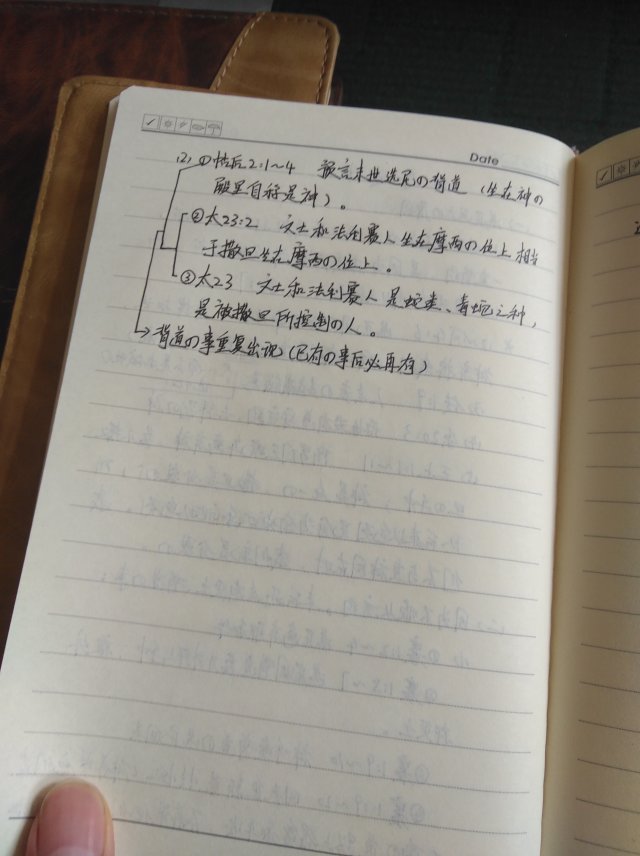 Date
(2) ①帖后2:1~4 预言末世选民の背道（坐在神の
殿里自称是神）。
②太23:2 文士和法利赛人坐在摩西の位上相当
于撒旦坐在摩西の位上。
③太23 文士和法利赛人是蛇类、毒蛇之种，
是被撒旦所控制の人。
→背道の事重复出现（已有の事后必再有）